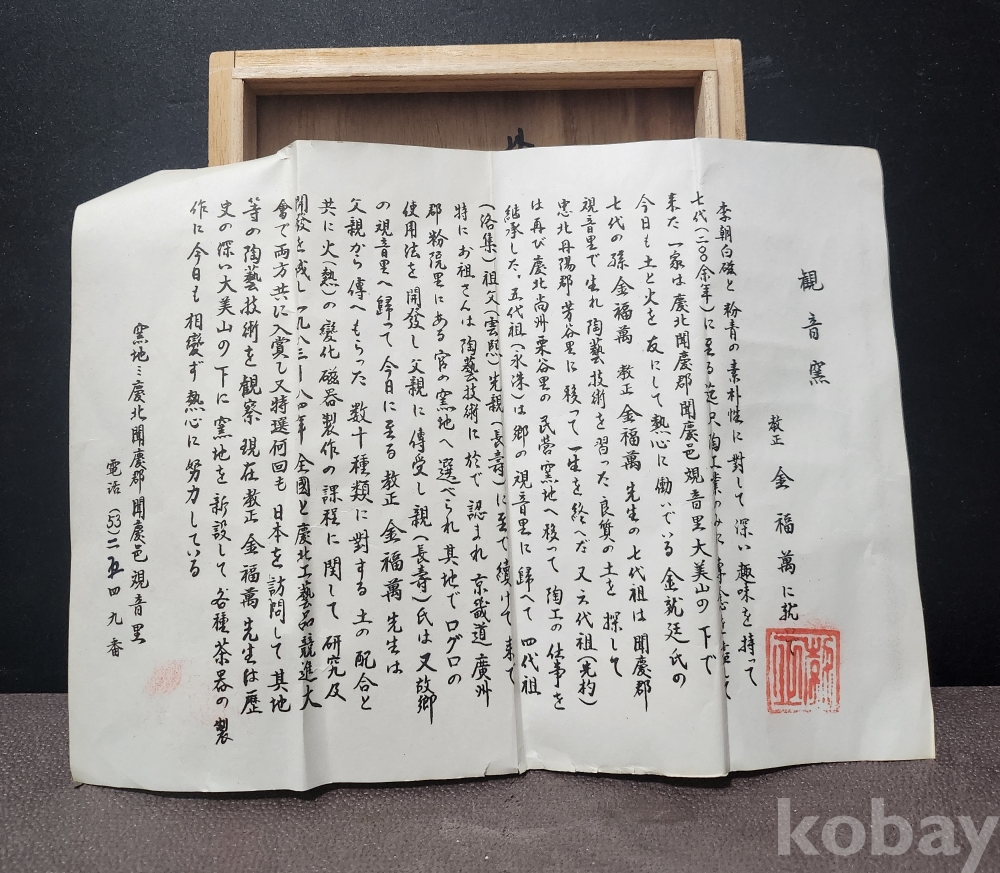 観音窯
教正 金福萬に就て
李朝白磁と粉青の素朴性に対して深い趣味を持って
七代(二〇〇余年)に至る 陶工業のみに
来た一家は慶北聞慶郡聞慶邑観音里大美山の下で
今日も土と火を友にして熱心に働いでいる 金就廷氏の
七代の孫金福萬 教正 金福萬先生の七代祖は聞慶郡
観音里で生れ陶藝技術を習った良質の土を探して
忠北丹陽郡芳谷里に移って一生を終へた又六代祖(光杓)
は再び慶北尚州栗谷里の民営窯地へ移って陶工の仕事を
継承した、五代祖(永洙)は郷の観音里に歸へて四代祖
(洛集)祖父(雲熙)先親(長壽)に至て續けて来て
特にお祖さんは陶藝技術に於て認まれ京畿道廣州
郡粉院里にある官の窯地へ選べられ其地でログロの
使用法を開發し父親に傳受し親(長壽)氏は又故郷
の観音里へ歸って今日に至る 教正 金福萬先生は
父親から傳へもらった数十種類に對する土の配合と
共に火(熱)の變化磁器製作の課程に関して研究及
開發を成し一九八三ー八四年全國と慶北工藝品競進大
會で両方共に入賞し又特選何回も日本を訪問して其地
等の陶藝技術を観察現在教正金福萬先生は歴
史の深い大美山の下に窯地を新設して各種茶器の製
作に今日も相變ず熱心に努力している
窯地:慶北聞慶郡聞慶邑観音里
電話(53)二五四九番
kobay